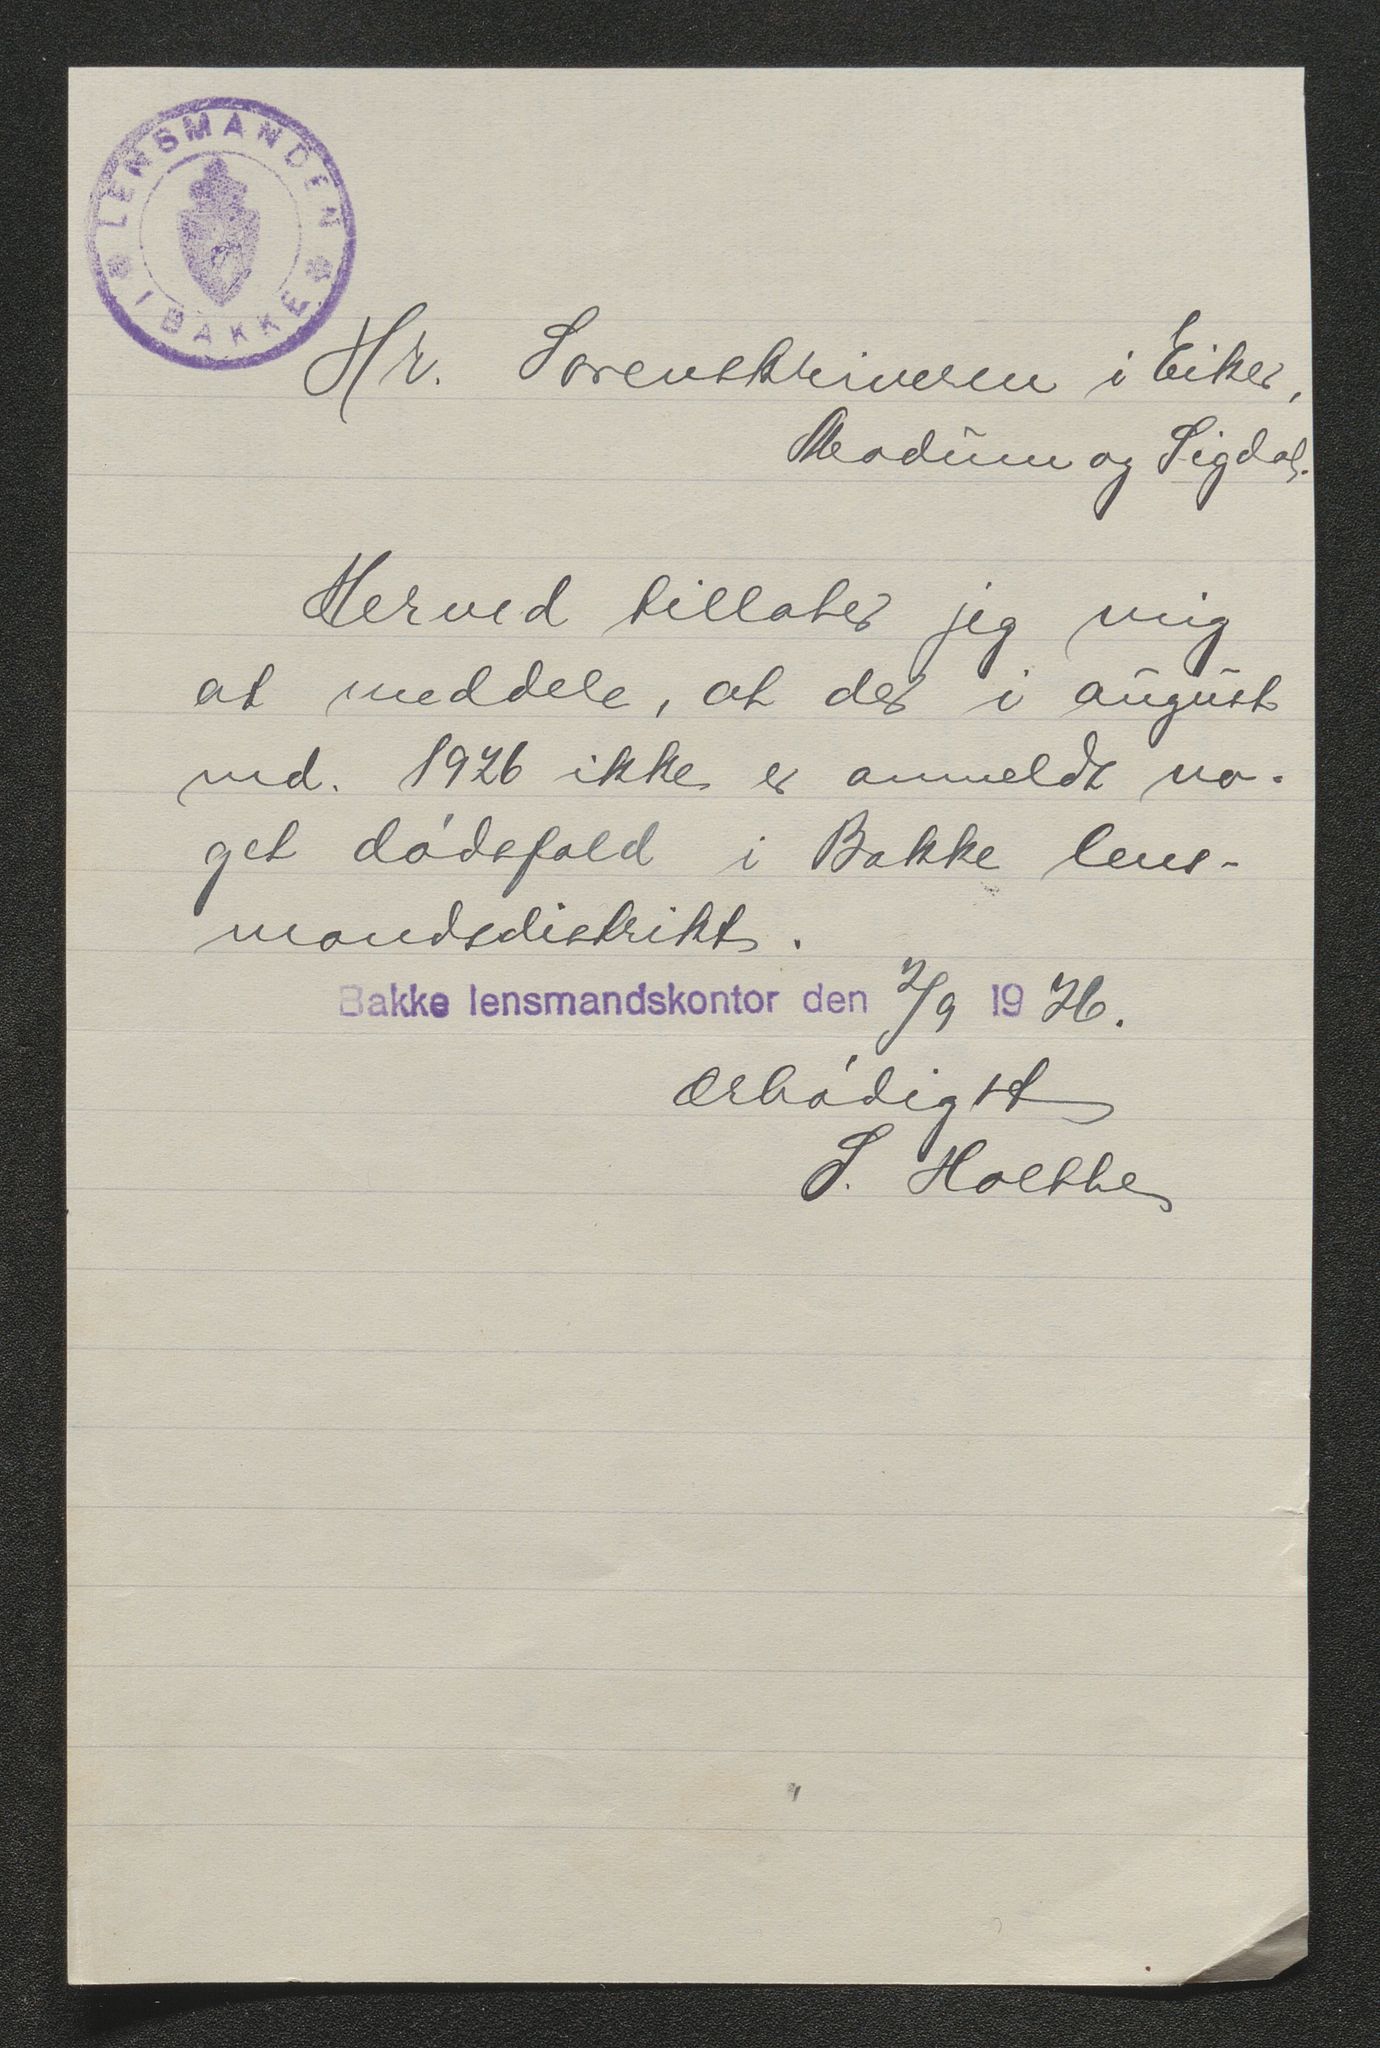 LENSMANDEN
I BAKKE
Hr. Sorenskriveren i Eiker,
Modum og Sigdal.
Herved tillater jeg mig
at meddele, at der i august
md. 1926 ikke er anmeldt no-
get dødsfald i Bakke lens-
mandsdistrikt.
Bakke lensmandskontor den 2/9 1926.
Ærbødigst
S. Holtke